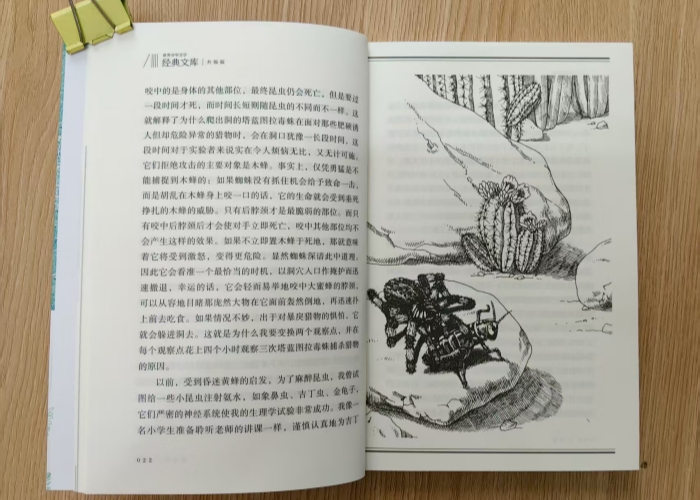 经典文库
咬中的是身体的其他部位，最终昆虫仍会死亡，但是要过
一段时间才死，而时间长短则随昆虫的不同而不一样。这
就解释了为什么爬出洞的塔蓝图拉毒蛛在面对那些肥硕诱
人但却危险异常的猎物时，会在洞口犹豫一长段时间，这
段时间对于实验者来说实在令人烦恼无比，又无计可施。
它们拒绝攻击的主要对象是木蜂。事实上，仅凭勇猛是不
能捕捉到木蜂的；如果蜘蛛没有抓住机会给予致命一击，
而是胡乱在木蜂身上咬一口的话，它的生命就会受到垂死
挣扎的木蜂的威胁。只有后脖颈才是最脆弱的部位，而只
有咬中后脖颈后才会使对手立即死亡，咬中其他部位均不
会产生这样的效果。如果不立即置木蜂于死地，那就意味
着它将受到激怒，变得更危险。显然蜘蛛深谙此中道理，
因此它会看准一个最恰当的时机，以洞穴入口作掩护而迅
速撤退，幸运的话，它会轻而易举地咬中大蜜蜂的脖颈，
可以从容地目睹那庞然大物在它面前轰然倒地，再迅速扑
上前去吃食。如果情况不妙，出于对暴戾猎物的惧怕，它
就会躲进洞去。这就是为什么我要变换两个观察点，并在
每个观察点花上四个小时观察三次塔蓝图拉毒蛛捕杀猎物
的原因。
以前，受到昏迷黄蜂的启发，为了麻醉昆虫，我曾试
图给一些小昆虫注射氨水，如象鼻虫、吉丁虫、金龟子，
它们严密的神经系统使我的生理学试验非常成功。我像一
名小学生准备聆听老师的讲课一样，谨慎认真地为吉丁
022